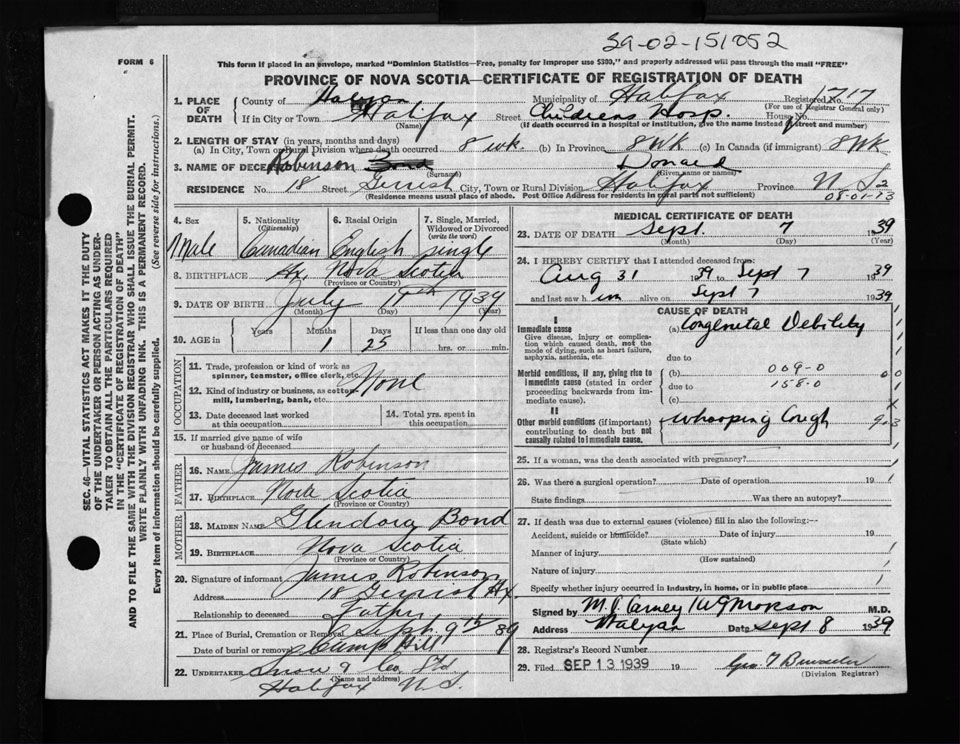 39-02-151052
FORM 6
This form if placed in an envelope, marked "Dominion Statistics—Free, penalty for improper use $300," and properly addressed will pass through the mail "FREE"
PROVINCE OF NOVA SCOTIA—CERTIFICATE OF REGISTRATION OF DEATH
SEC. 46—VITAL STATISTICS ACT MAKES IT THE DUTY
OF THE UNDERTAKER OR PERSON ACTING AS UNDER-
TAKER TO OBTAIN ALL THE PARTICULARS REQUIRED
IN THE "CERTIFICATE OF REGISTRATION OF DEATH"
AND TO FILE THE SAME WITH THE DIVISION REGISTRAR WHO SHALL ISSUE THE BURIAL PERMIT.
WRITE PLAINLY WITH UNFADING INK. THIS IS A PERMANENT RECORD.
Every item of information should be carefully supplied. (See reverse side for instructions.)
1. PLACE OF DEATH County of Municipality of Halifax Registered No. 1717
(For use of Registrar General only)
If in City or Town Halifax Street Childrens Hosp. House No.
(Name) (If death occurred in a hospital or institution, give the name instead of street and number)
2. LENGTH OF STAY (in years, months and days)
(a) In City, Town or Rural Division where death occurred 8 wk. (b) In Province 8 wk (c) In Canada (if immigrant) 8 wk
3. NAME OF DECEASED Robinson Bond Donald
(Surname) (Given name or names)
RESIDENCE No. 18 Street Gerrish City, Town or Rural Division Halifax Province N.S.
(Residence means usual place of abode. Post Office Address for residents in rural parts not sufficient)
08-01-13
4. Sex 5. Nationality 6. Racial Origin 7. Single, Married, Widowed or Divorced
(Citizenship) (write the word)
Male Canadian English Single
8. BIRTHPLACE Hx, Nova Scotia
(Province or Country)
9. DATE OF BIRTH July 1939
(Month) (Day) (Year)
10. AGE in Years Months Days If less than one day old
1 25 hrs. or min.
OCCUPATION
11. Trade, profession or kind of work as
spinner, teamster, office clerk, etc. None
12. Kind of industry or business, as cotton
mill, lumbering, bank, etc.
13. Date deceased last worked at this occupation 14. Total yrs. spent in this occupation
15. If married give name of wife
or husband of deceased
FATHER
16. NAME James Robinson
17. BIRTHPLACE Nova Scotia
(Province or Country)
MOTHER
18. MAIDEN NAME Glendora Bond
19. BIRTHPLACE Nova Scotia
(Province or Country)
20. Signature of informant James Robinson
Address 18 Gerrish Hx.
Relationship to deceased Father
21. Place of Burial, Cremation or Removal Camp Hill
Date of burial or removal Sept 9th 39
22. UNDERTAKER Snow & Co. Ltd
(Name and address)
Halifax N.S.
MEDICAL CERTIFICATE OF DEATH
23. DATE OF DEATH Sept. 7 1939
(Month) (Day) (Year)
24. I HEREBY CERTIFY that I attended deceased from:
Aug 31 1939 to Sept 7 1939
and last saw him alive on Sept 7 1939
CAUSE OF DEATH
I
Immediate cause (a) Congenital Debility
Give disease, injury or complica-
tion which caused death, not the
mode of dying, such as heart failure,
asphyxia, asthenia, etc. due to
Morbid conditions, if any, giving rise to (b) 009-0
immediate cause (stated in order due to 158-0
proceeding backwards from im-
mediate cause). (c)
II
Other morbid conditions (if important) Whooping Cough
contributing to death but not
causally related to immediate cause.
25. If a woman, was the death associated with pregnancy?
26. Was there a surgical operation? Date of operation 19
State findings Was there an autopsy?
27. If death was due to external causes (violence) fill in also the following:—
Accident, suicide or homicide? Date of injury 19
(State which)
Manner of injury
(How sustained)
Nature of injury
Specify whether injury occurred in industry, in home, or in public place
Signed by M. J. Carney M.D.
Address Halifax Date Sept 8 1939
28. Registrar's Record Number
29. Filed SEP 13 1939 19
(Division Registrar)